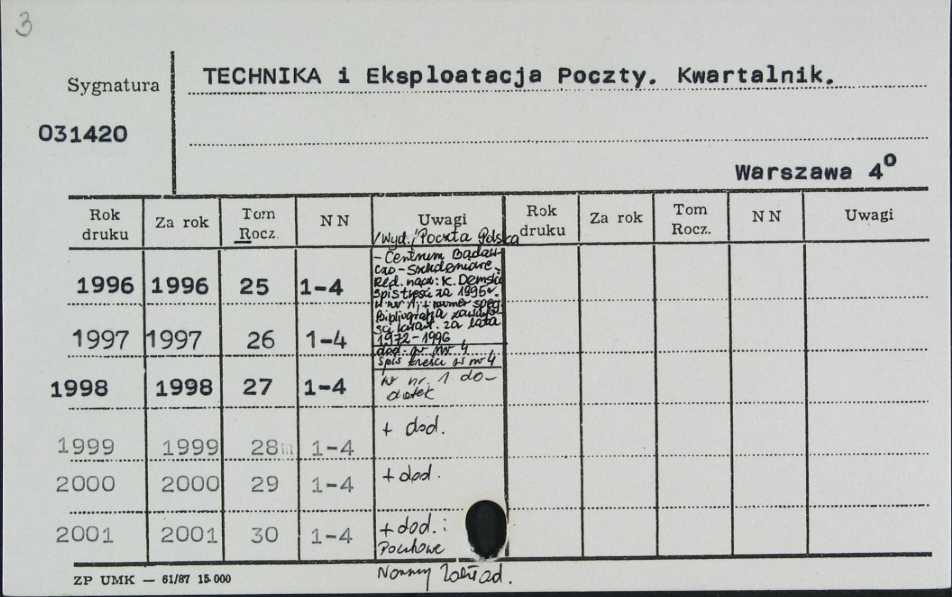 3
Sygnatura TECHNIKA i Eksploatacja Poczty. Kwartalnik.
031420
Warszawa 4º
Rok druku Za rok Tom Rocz. N N Uwagi Rok druku Za rok Tom Rocz. N N Uwagi
/Wyd./Poczta Polska
- Centrum Badaw-
czo-Szkoleniowe.
Red. nacz: K. Demski
1996 1996 25 1-4
Spis treści za 1995 r.
w nr 1, + numer spec.
Bibliografia
za lata
1972-1996
1997 1997 26 1-4
dod. nr 4
Spis treści w nr 4
1998 1998 27 1-4 w nr. 1 do-
datek
1999 1999 28 1-4 + dod.
2000 2000 29 1-4 + dod.
2001 2001 30 1-4 + dod.:
Pocztowe
Normy Zakład.
ZP UMK — 61/87 15.000